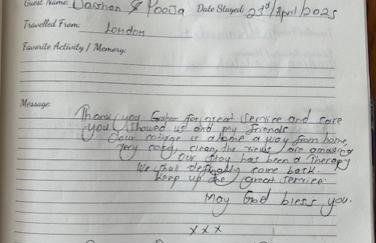 Guest Name: Darshan & Pooja Date Stayed: 23rd/April/2025
Travelled From: London
Favorite Activity / Memory:
Message:
Thank you for great service and care
you showed us and my friends.
Your cottage is a home a way from home,
very cozy, clean, the views are amazing
Our stay has been a therapy
We shall definately come back.
Keep up the great service.
May God bless you.
xxx